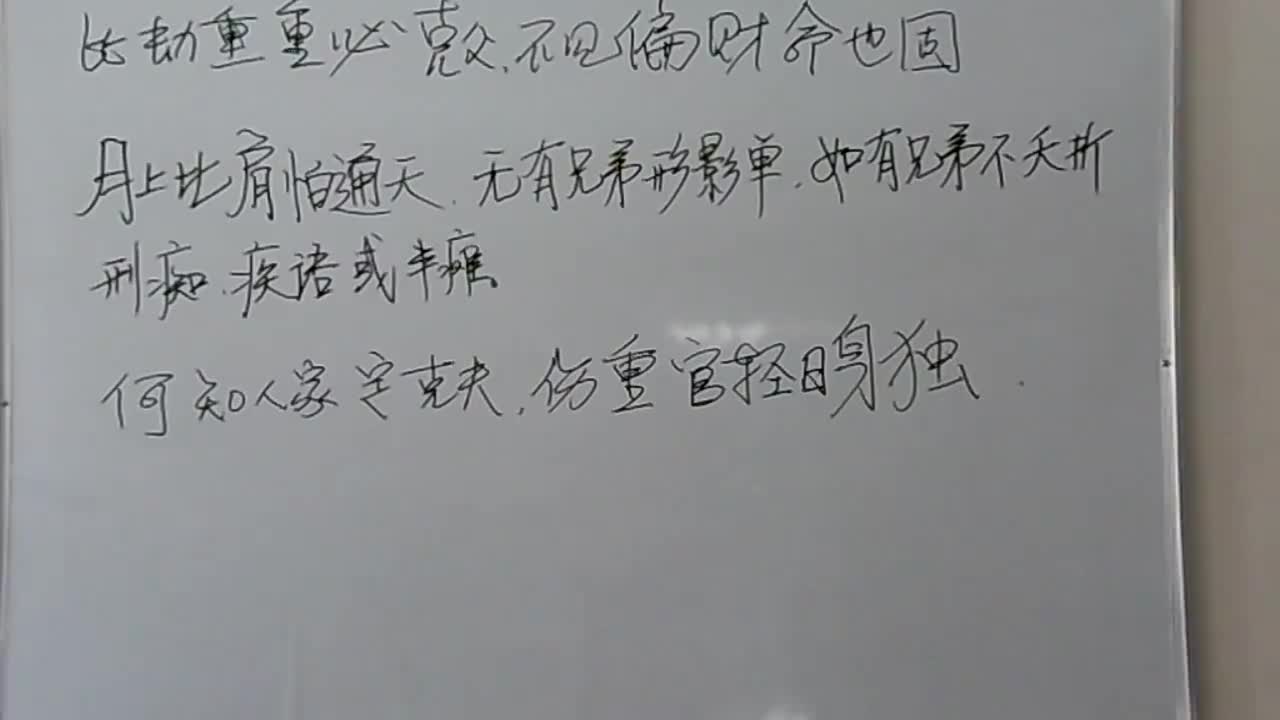 比劫重重必克父.不见偏财命也固
月上比肩怕通天.无有兄弟形影单.如有兄弟不夭折
刑痴.疾语或半瘫.
何知人家定克夫,伤重官轻日身独.